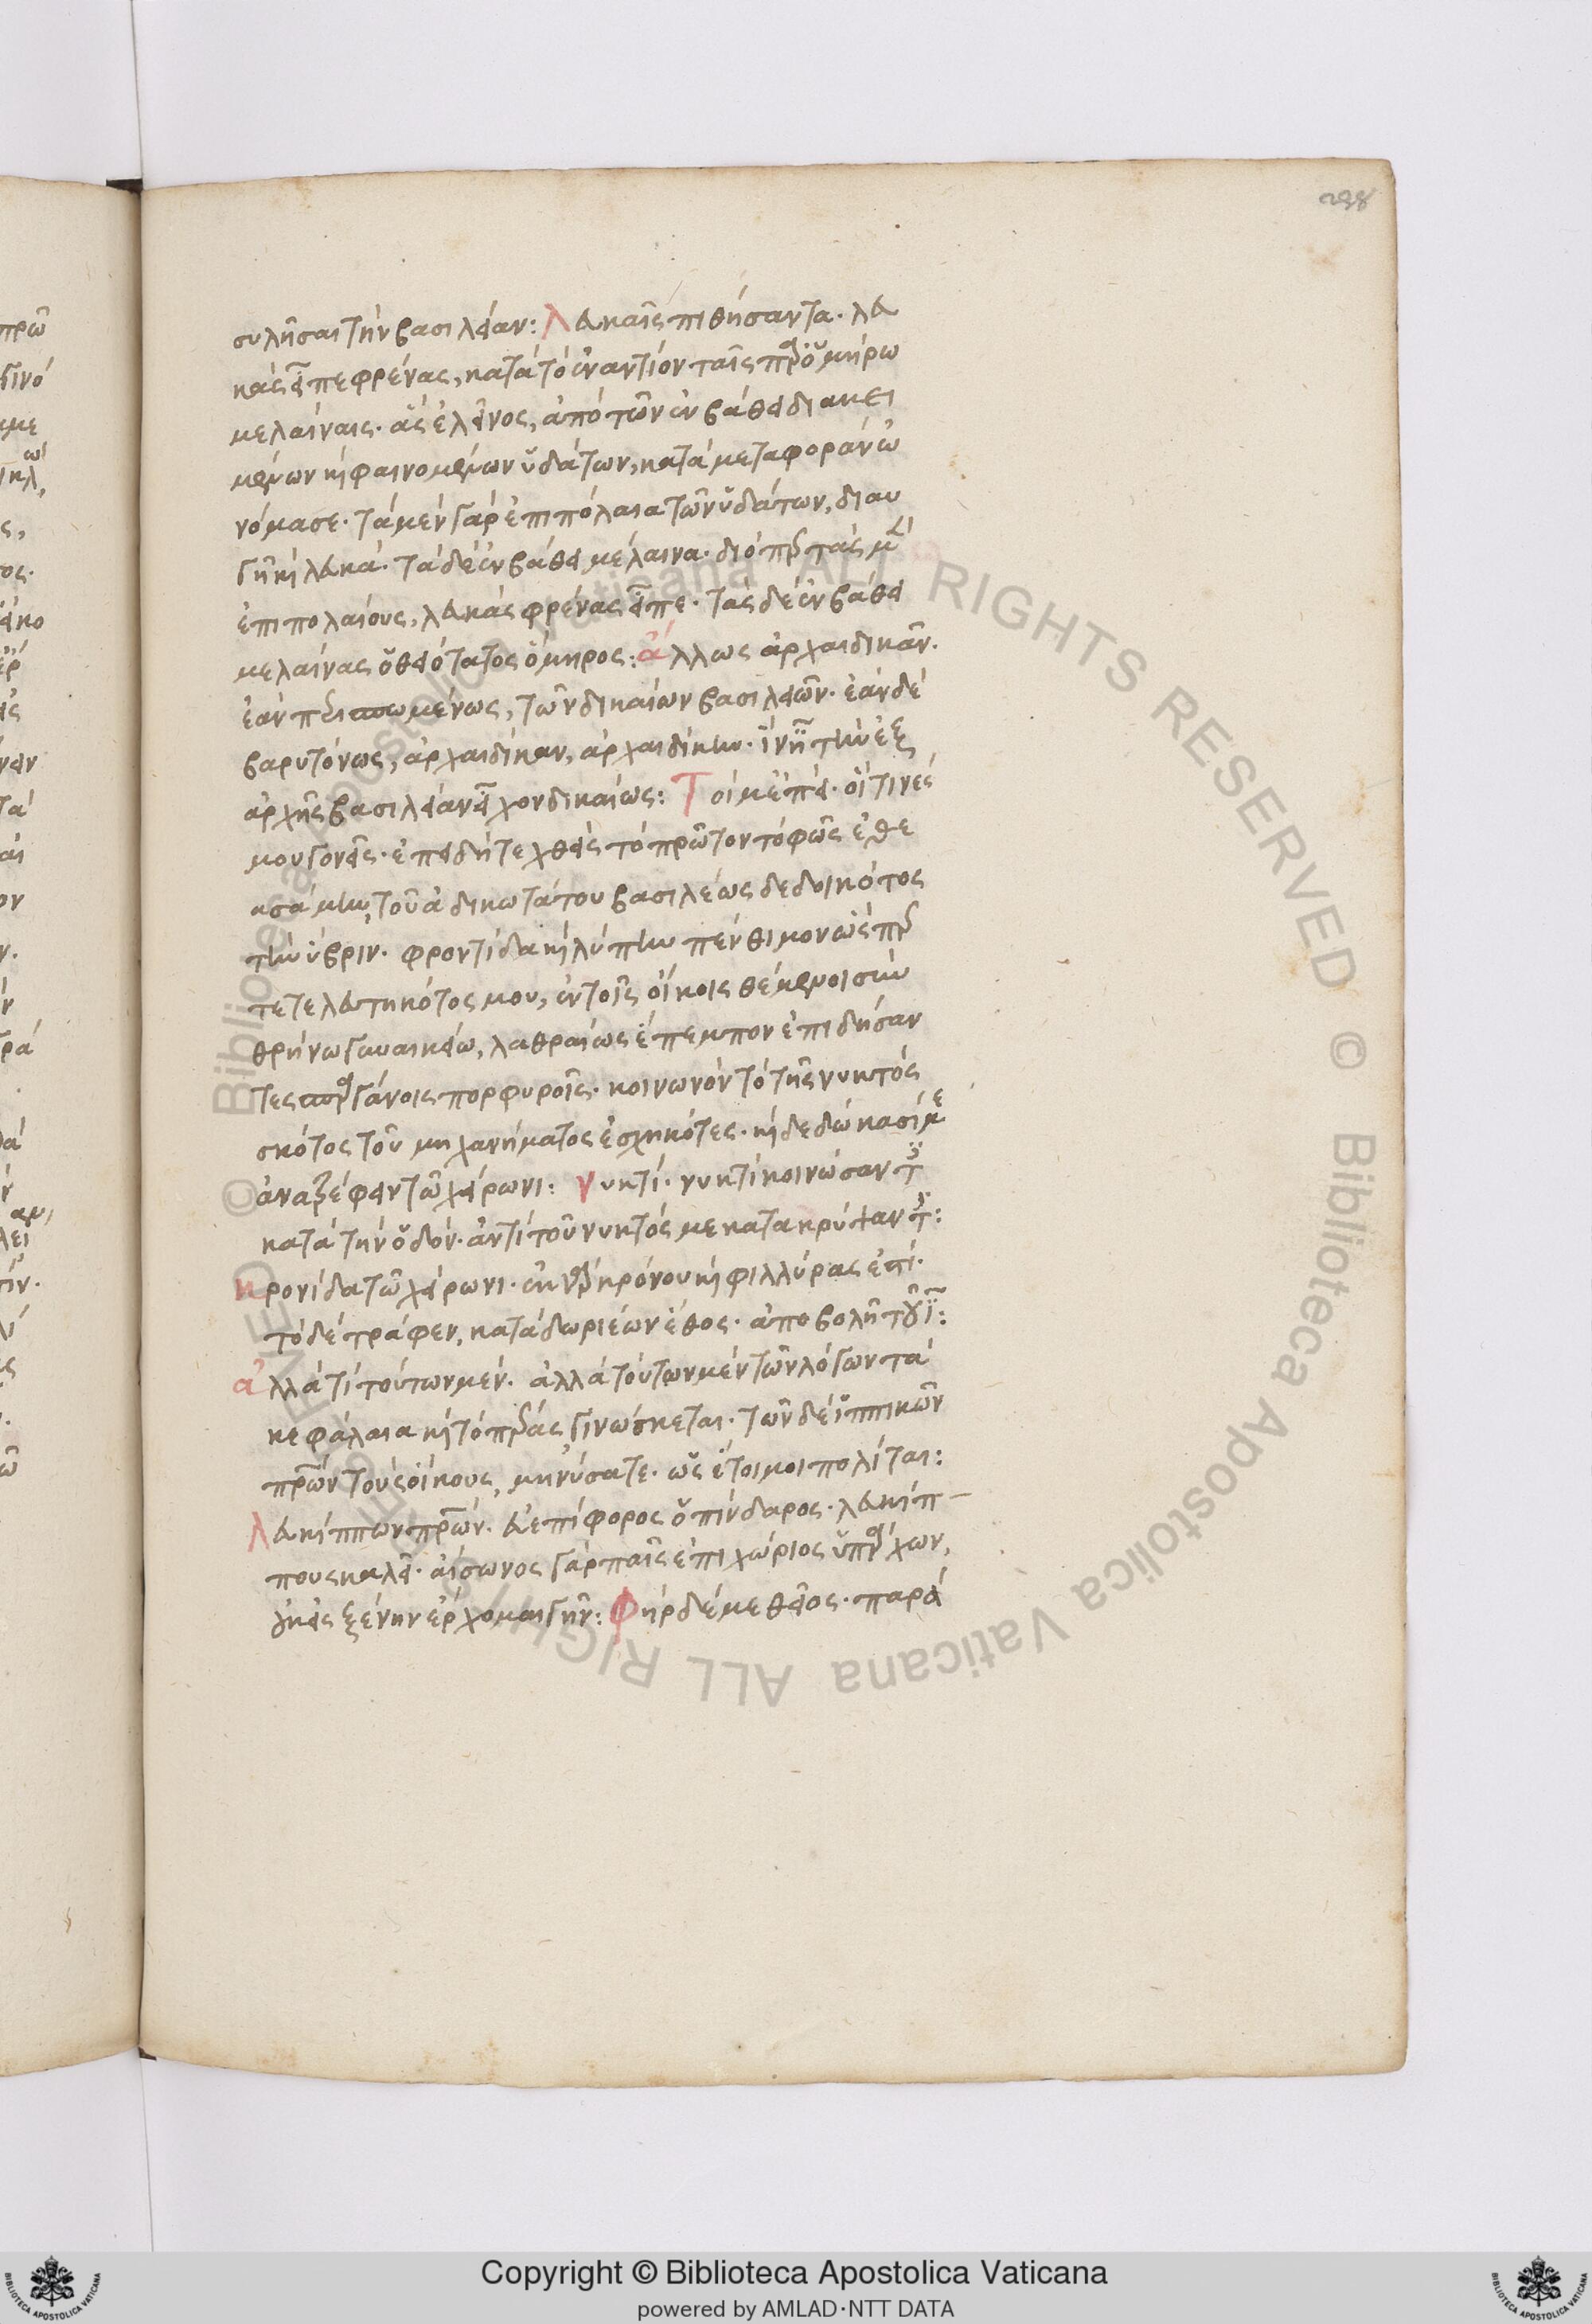 238
συλῆσαι τὴν βασιλείαν: Λευκαῖς πιθήσαντα. λευ
κὰς εἶπε φρένας, κατὰ τὸ ἐναντίον ταῖς παρ' ὁμήρω
μελαίναις. ἃς ἐκεῖνος, ἀπὸ τῶν ἐν βάθει διακει
μένων κὶ φαινομένων ὑδάτων, κατὰ μεταφορὰν ὠ
νόμασε. τὰ μὲν γὰρ ἐπιπόλαια τῶν ὑδάτων, διαυ
γῆ κὶ λευκά. τὰ δὲ ἐν βάθει μέλαινα. διόπερ τὰς μὲν
ἐπιπολαίους, λευκὰς φρένας εἶπε. τὰς δὲ ἐν βάθει
μελαίνας ὁ θειότατος ὅμηρος: ἄλλως ἀρχαιδικᾶν.
ἐὰν περισπωμένως, τῶν δικαίων βασιλειῶν. ἐὰν δὲ
βαρυτόνως, ἀρχαιδίκαν, ἀρχαιδίκην. ἵν' ἦ τὴν ἐξ
ἀρχῆς βασιλείαν εἶχον δικαίως: Τοί μ' ἐπεί. οἵτινές
μου γονεῖς. ἐπειδὴ τεχθεὶς τὸ πρῶτον τὸ φῶς ἐθε
ασάμην, τοῦ ἀδικωτάτου βασιλέως δεδοικότος
τὴν ὕβριν. φροντίδα κὶ λύπην πένθιμον ὥσπερ
τετελευτηκότος μου, ἐν τοῖς οἴκοις θέμενοι σὺν
θρήνω γυναικείω, λαθραίως ἔπεμπον ἐπιδήσαν
τες σπαργάνοις πορφυροῖς. κοινωνὸν τὸ τῆς νυκτὸς
σκότος τοῦ μηχανήματος ἐσχηκότες. κὶ δεδώκασί με
ἀνατρέφειν τῶ χείρωνι: νυκτί. νυκτὶ κοινώσαντες
κατὰ τὴν ὁδόν. ἀντὶ τοῦ νυκτός με κατακρύψαντες:
κρονίδα τῶ χείρωνι. ἐκ γὰρ κρόνου κὶ φιλλύρας ἐστί.
τὸ δὲ τράφεν, κατὰ δωριέων ἔθος. ἀποβολῆ τοῦ ϊ:
ἀλλά τι τούτων μέν. ἀλλὰ τούτων μὲν τῶν λόγων τὰ
κεφάλαια κὶ τὸ πέρας γινώσκεται. τῶν δὲ ἱππικῶν
πρῶν τοὺς οἴκους, μηνύσατε. ὡς ἕτοιμοι πολῖται:
Λευκίππων πρῶν. εὐεπίφορος ὁ πίνδαρος. λευκίπ–
πους καλεῖ. αἴσωνος γὰρ παῖς ἐπιχώριος ὑπάρχων,
οὐκ εἰς ξένην ἔρχομαι γῆν: Φὴρ δέ με θεῖος. παρὰ
Copyright © Biblioteca Apostolica Vaticana
powered by AMLAD·NTT DATA